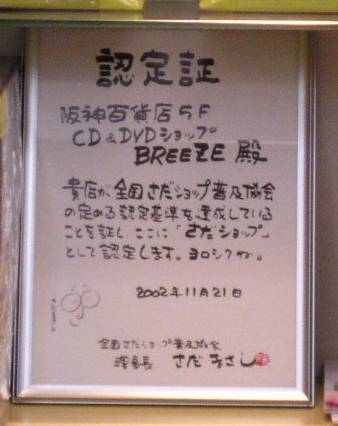 認定証
阪神百貨店5F
CD&DVDショップ
BREEZE 殿
貴店が全国さだショップ普及協会
の定める認定基準を達成している
ことを証し、ここに「さだショップ」
として認定します。ヨロシクね。
2002年11月21日
全国さだショップ普及協会
さだまさし